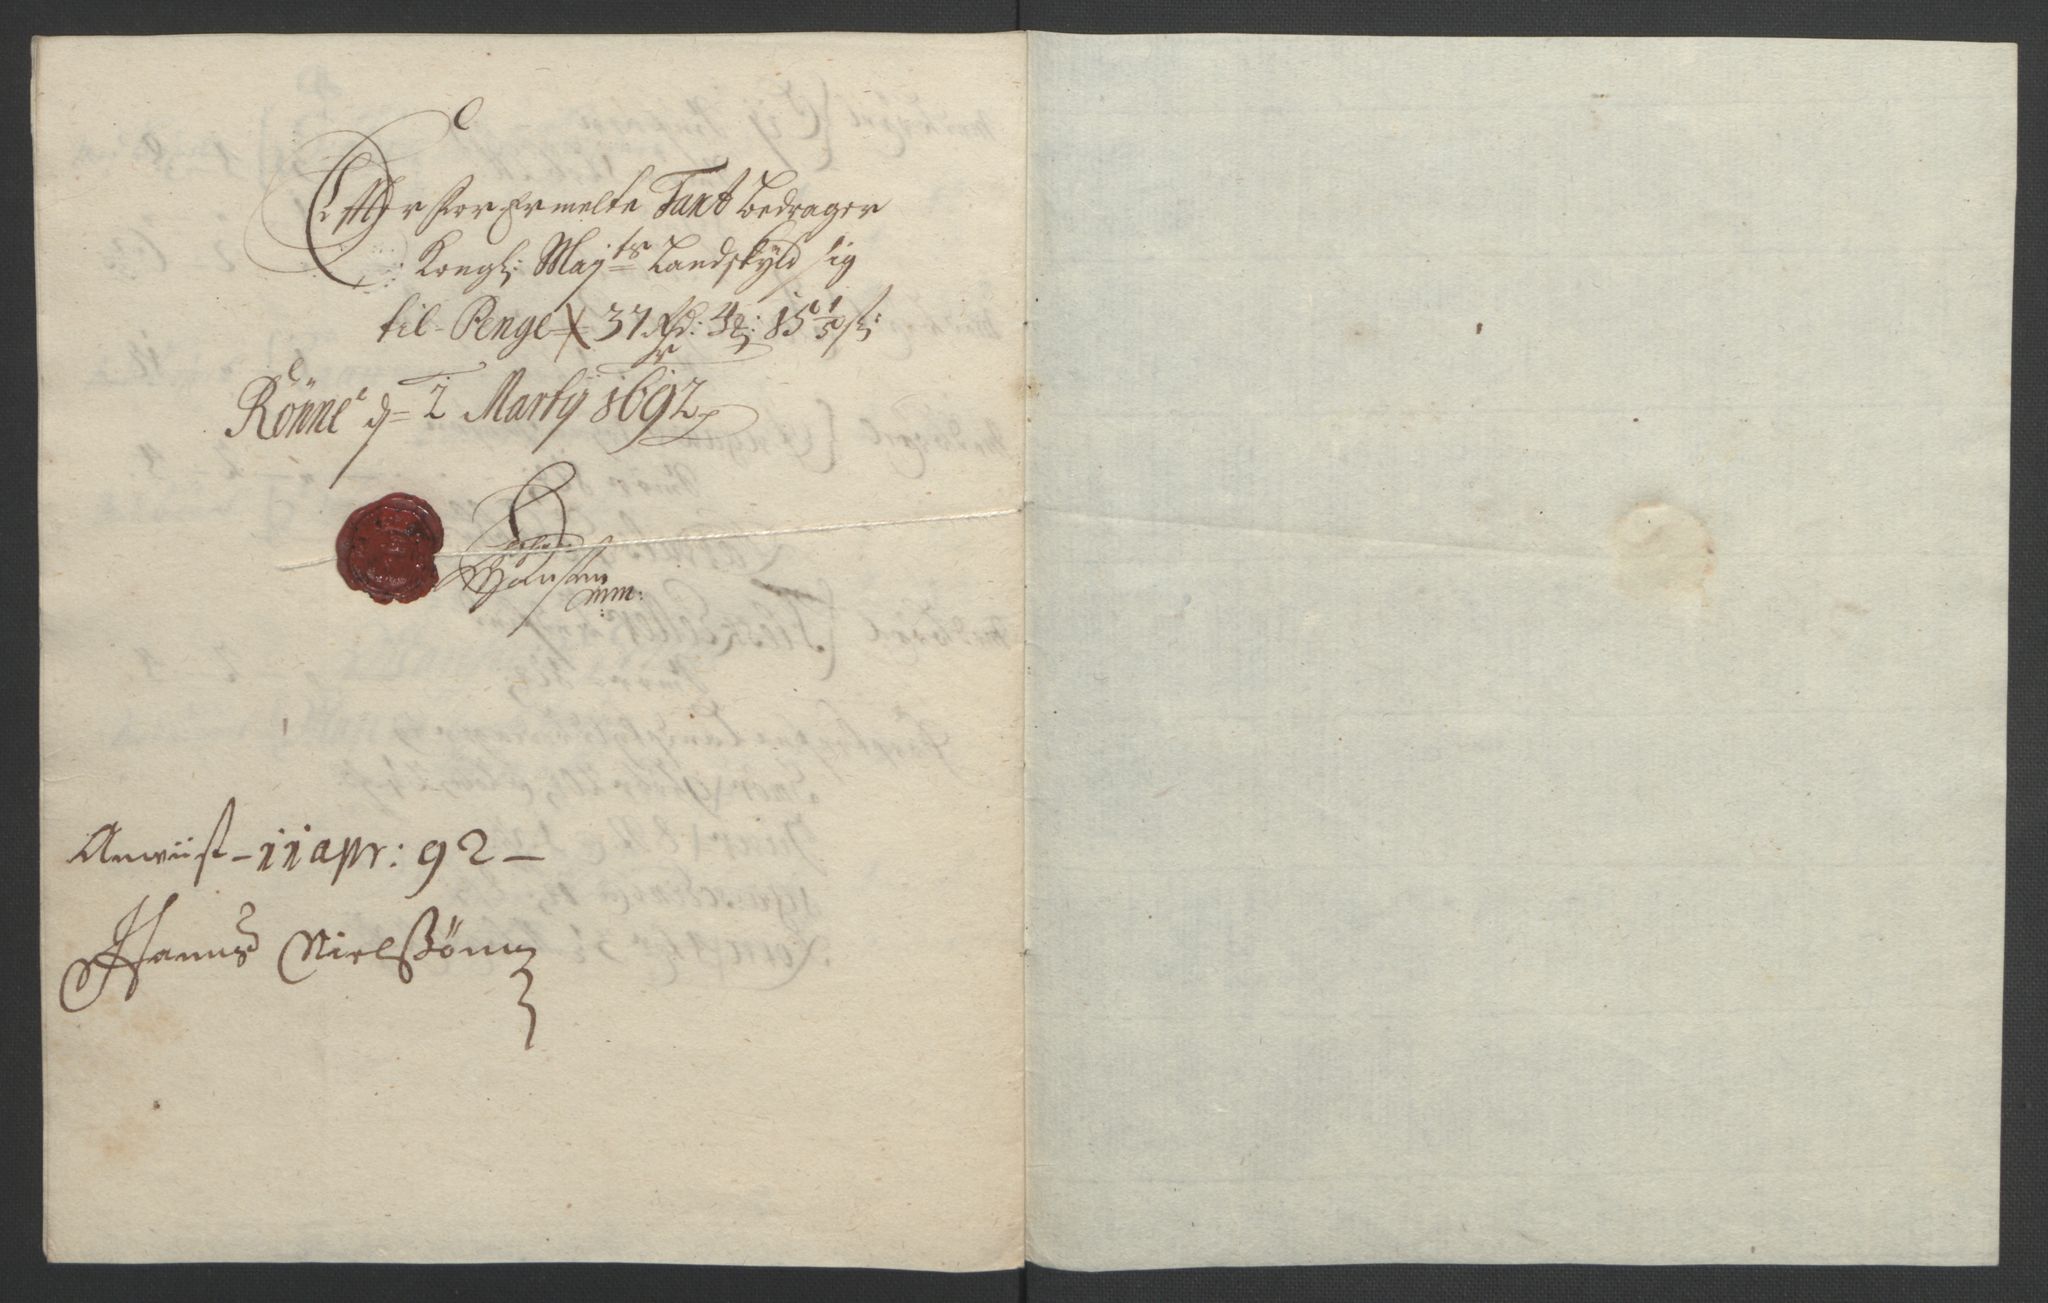 Effter for Ermelte Taxt bedrager
Kongl: Maj:ts Landskÿld sig
til Penge 37 Rd: 3 15 1/5 s:
Rönne d= 2 Martÿ 1692
Hansen
mm:
Anviist - 11 apr: 92 -
Hanns Nielsßönn